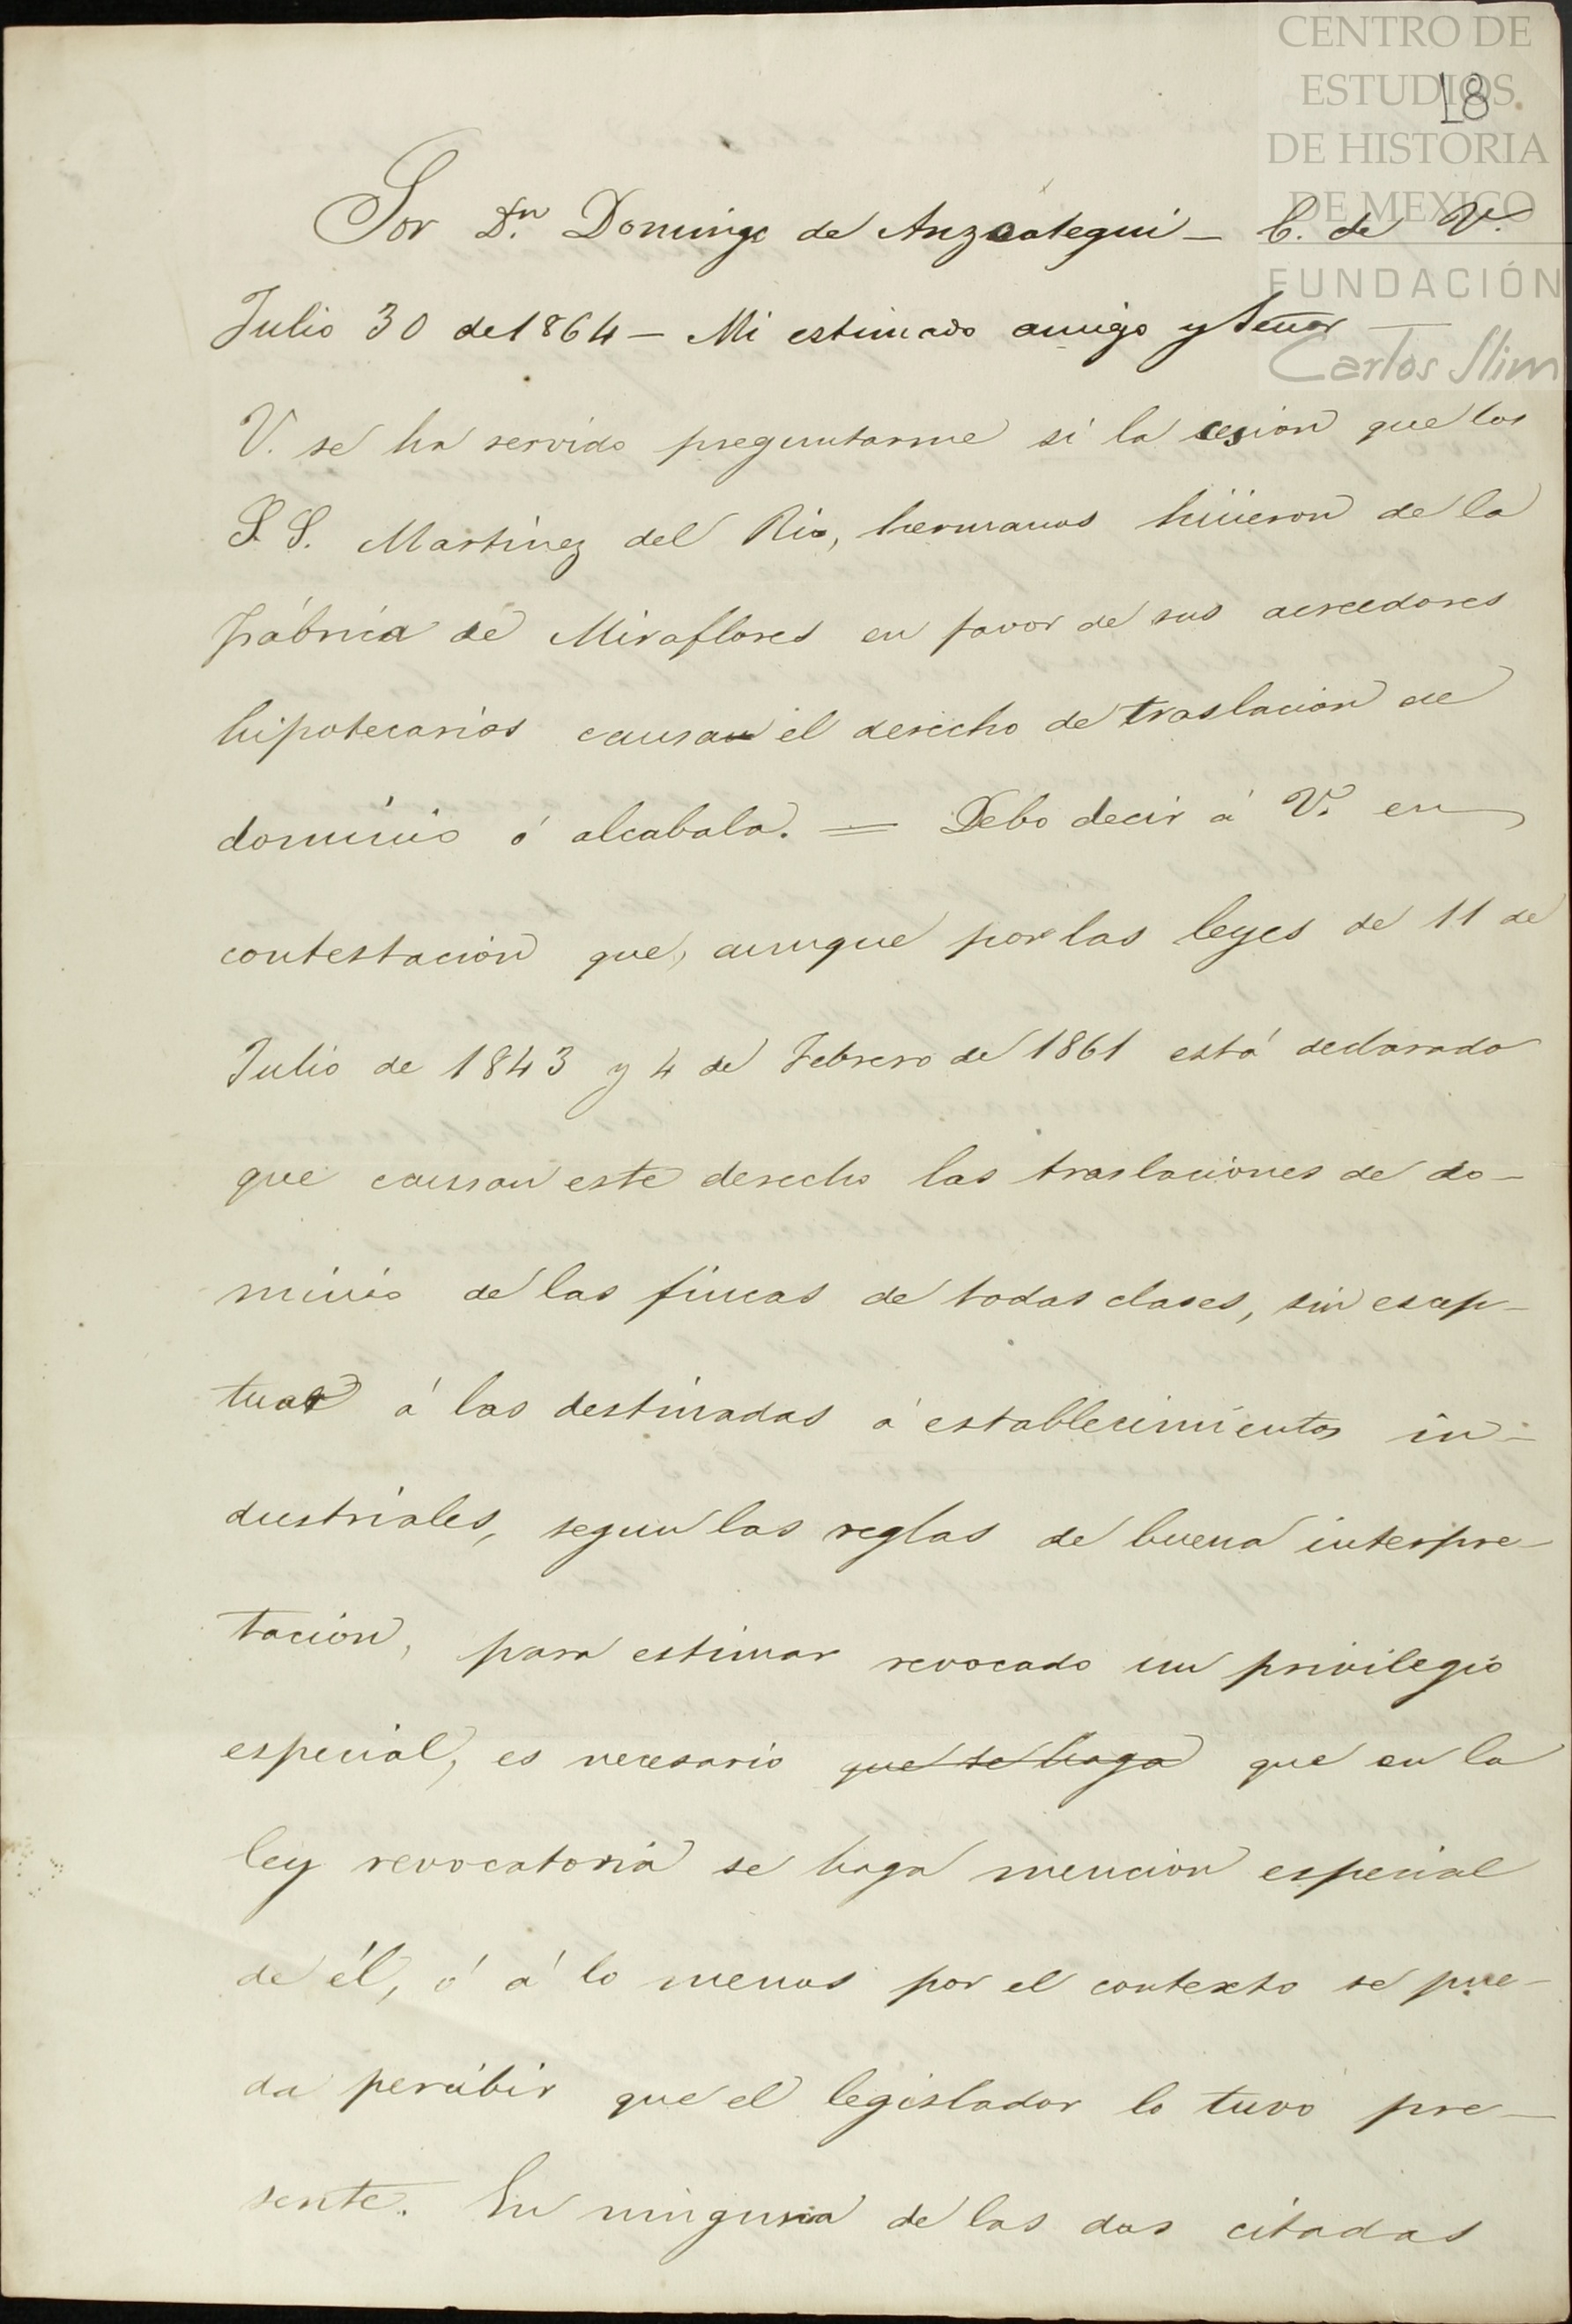 CENTRO DE
ESTUDIOS
DE HISTORIA
DE MEXICO
FUNDACIÓN
Carlos Slim
18
Sor Dn. Domingo de Anzoategui – C. de V.
Julio 30 de 1864 – Mi estimado amigo y Señor
V. se ha servido preguntarme si la cesion que los
S. S. Martinez del Rio, hermanos hicieron de la
fábrica de Miraflores en favor de sus acreedores
hipotecarios causa el derecho de traslacion de
dominio ó alcabala. = Debo decir á V. en
contestacion que, aunque por las leyes de 11 de
Julio de 1843 y 4 de Febrero de 1861 está declarado
que causan este derecho las traslaciones de do-
minio de las fincas de todas clases, sin escep-
tuar á las destinadas á establecimientos in-
dustriales, segun las reglas de buena interpre-
tacion, para estimar revocado un privilegio
especial, es necesario que se haga que en la
ley revocatoria se haga mencion especial
de él, ó á lo menos por el contexto se pue-
da percibir que el legislador lo tuvo pre-
sente. En ninguna de las dos citadas